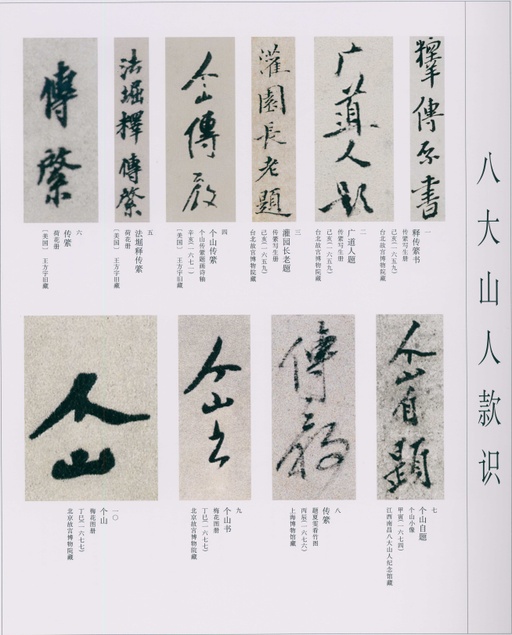 八大山人款识
释传綮书
广道人题
灌园长老题
个山传綮
法堀释传綮
传綮
一
释传綮书
传綮写生册
己亥(一六五九)
台北故宫博物院藏
二
广道人题
传綮写生册
己亥(一六五九)
台北故宫博物院藏
三
灌园长老题
传綮写生册
己亥(一六五九)
台北故宫博物院藏
四
个山传綮
个山传綮题画诗轴
辛亥(一六七一)
(美国) 王方宇旧藏
五
法堀释传綮
荷花册
(美国) 王方宇旧藏
六
传綮
荷花册
(美国) 王方宇旧藏
个山自题
传綮
个山书
个山
七
个山自题
个山小像
甲寅(一六七四)
江西南昌八大山人纪念馆藏
八
传綮
题夏雯看竹图
丙辰(一六七六)
上海博物馆藏
九
个山书
梅花图册
丁巳(一六七七)
北京故宫博物院藏
一〇
个山
梅花图册
丁巳(一六七七)
北京故宫博物院藏